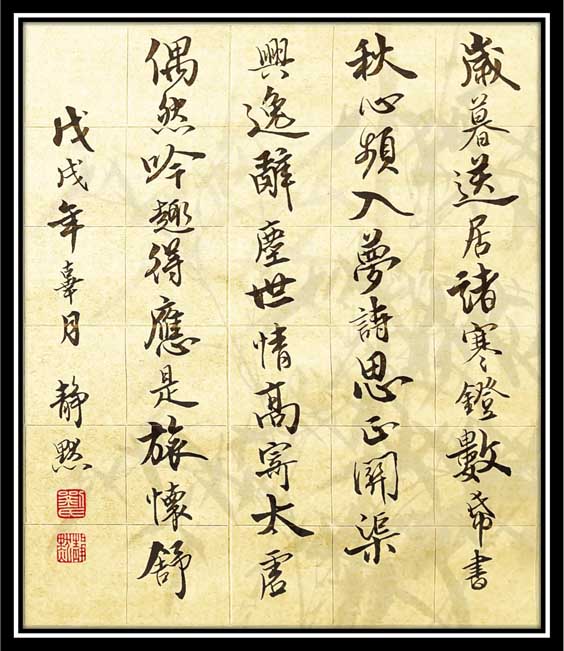 歲暮送居諸寒鐙數帋書
秋心頻入夢詩思正開渠
興逸辭塵世情高寄太虛
偶然吟趣得應是旅懷舒
戊戌年辜月 靜默